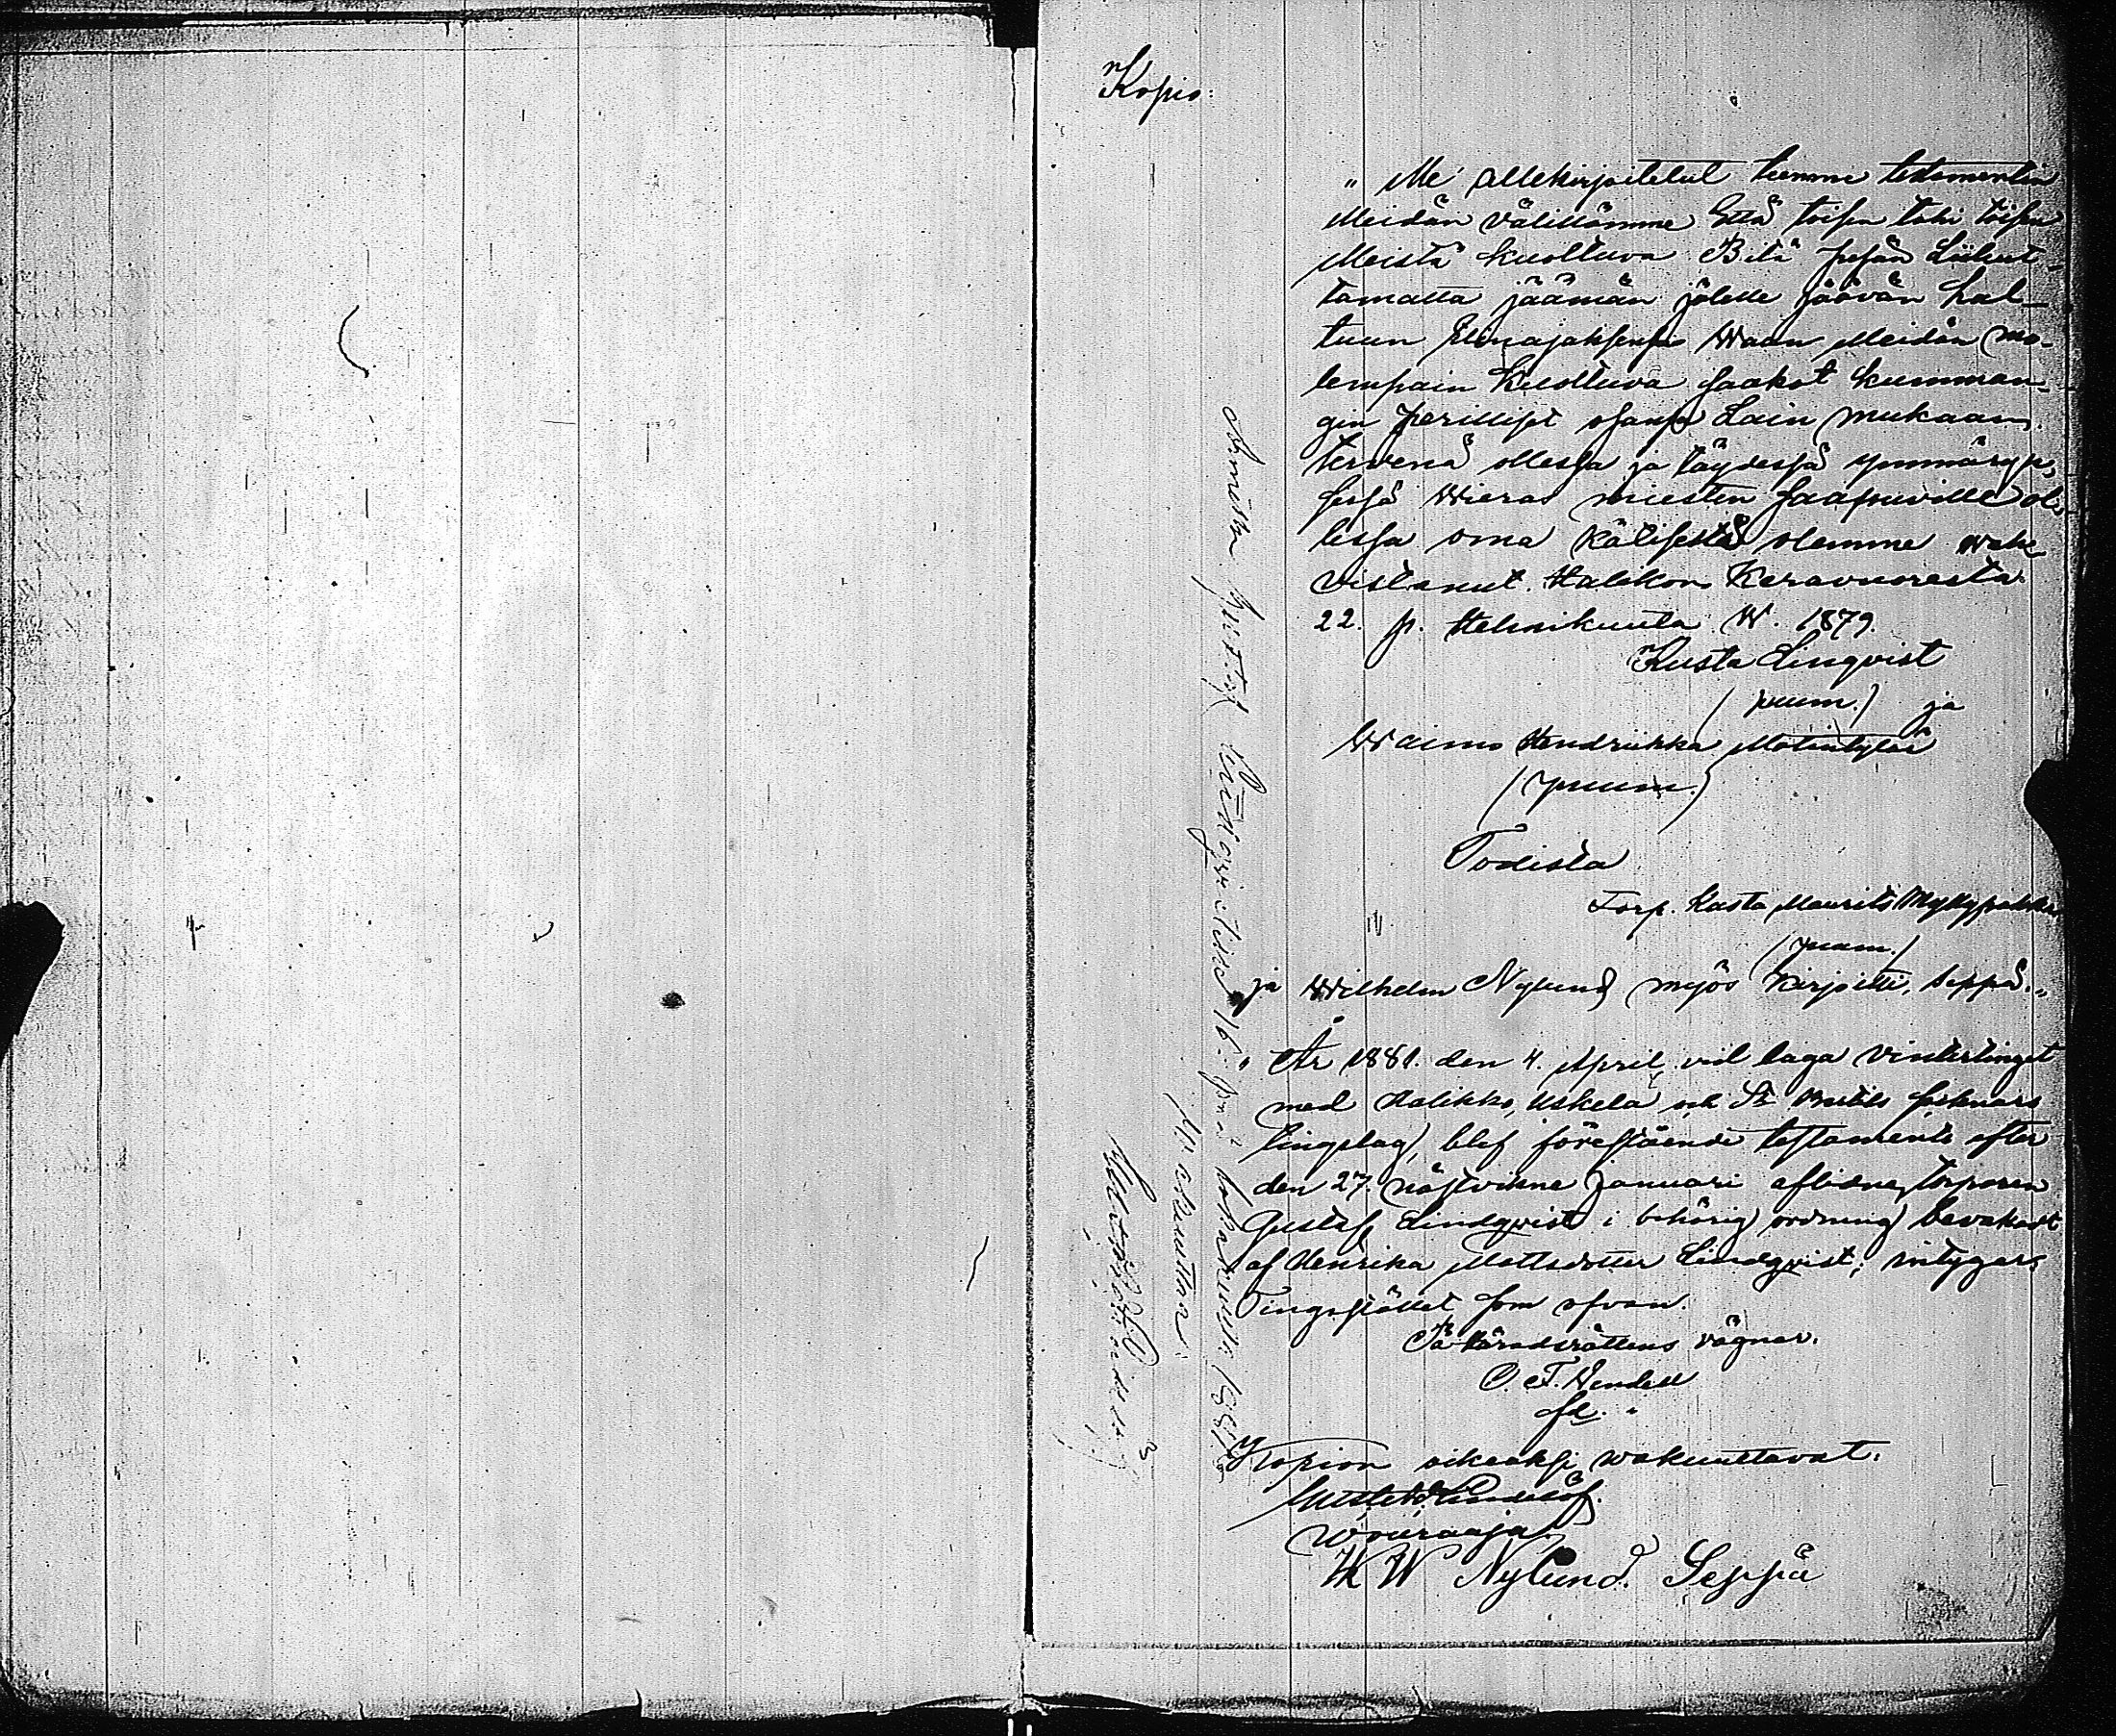 Kopio:
" Me allekirjoitetut teemme testamentin
Meidän välillämme Että toisen tahi toisen
Meistä kuoltuva Pitä Pesän Liikut-
tamatta jäämän jälelle jäävän hal-
tuun Elinajaksensa Waan Meidän mo-
lempain Kuoltuva saakot kumman-
gin perilliset osansa Lain mukaan.
terwenä ollessa ja täydessä ymmäryk-
sessä Wieras miesten saapuville ol-
lessa oma kätisestä olemme wah-
vistanut. Halikon Keravuoresta
22. p. Helmikuuta W. 1879.
Kusta Linqvist
(puum.) ja
Waimo Hendriikka Matintytär
(puum.)
Todista
Torp. Kusta Maurits Myllypakka
(puum.)
ja Wilhelm Nylund myös kirjoitti, Seppä."
" År 1881. den 4. April, vid laga Vintertinget
med Halikko, Uskela och St. Bertils socknars
tingslag, blef förestående testamente efter
den 27. nästvikne Januari aflidne torparen
Gustaf Lindqvist i behörig ordning bevakadt
af Henrika Mattsdotter Lindqvist; intygar.
Tingsstället som ofvan.
På Häradsrättens vägnar.
C. F. Wendell
Kopion oikeaksi wakuuttavat.
Wouraaja.
W Nylund. Seppä